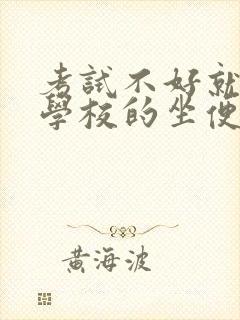 考試不好就
學校的坐便
黃海波